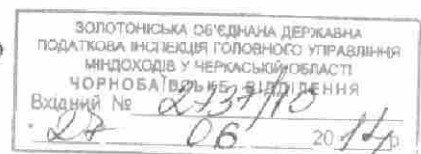 ЗОЛОТОНІСЬКА ОБ'ЄДНАНА ДЕРЖАВНА
ПОДАТКОВА ІНСПЕКЦІЯ ГОЛОВНОГО УПРАВЛІННЯ
МІНДОХОДІВ У ЧЕРКАСЬКІЙ ОБЛАСТІ
ЧОРНОБАЇВСЬКЕ ВІДДІЛЕННЯ
Вхідний № 2737/10
27 06 2014 р.